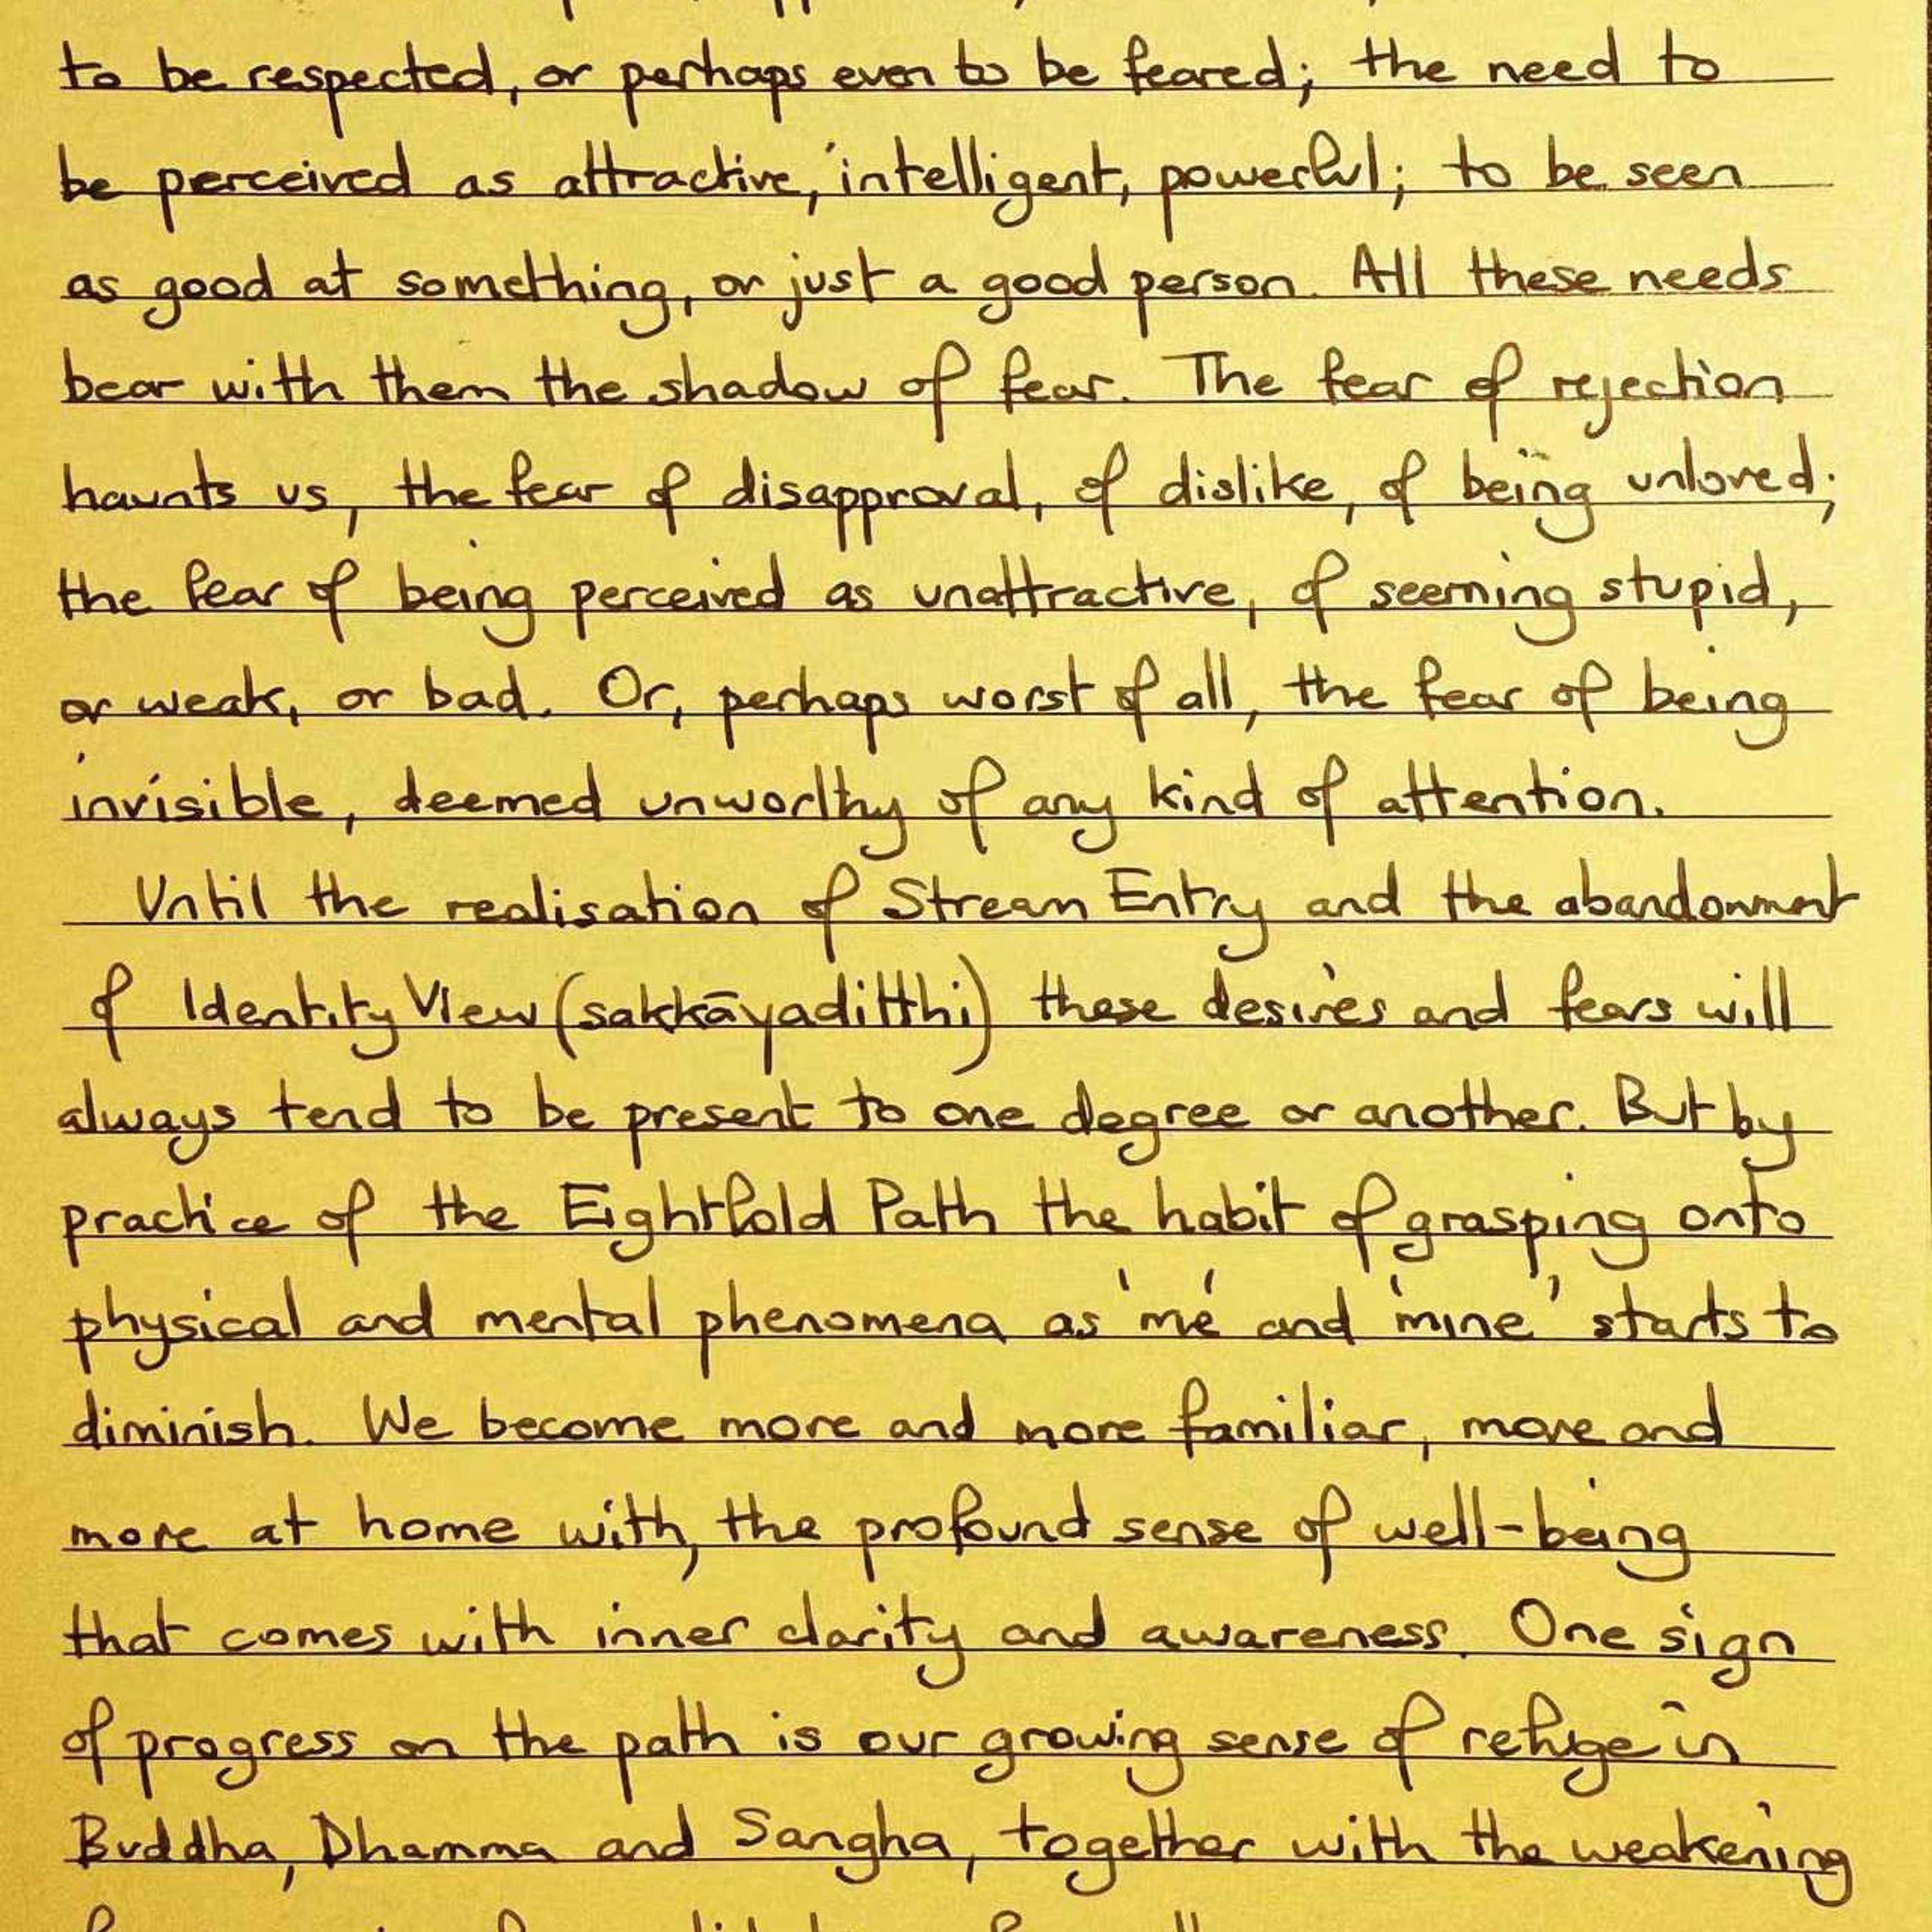 to be respected, or perhaps even to be feared; the need to
be perceived as attractive, intelligent, powerful; to be seen
as good at something, or just a good person. All these needs
bear with them the shadow of fear. The fear of rejection
haunts us, the fear of disapproval, of dislike, of being unloved;
the fear of being perceived as unattractive, of seeming stupid,
or weak, or bad. Or, perhaps worst of all, the fear of being
invisible, deemed unworthy of any kind of attention.
Until the realisation of Stream Entry and the abandonment
of Identity View (sakkāyaditthi) these desires and fears will
always tend to be present to one degree or another. But by
practice of the Eightfold Path the habit of grasping onto
physical and mental phenomena as 'me' and 'mine' starts to
diminish. We become more and more familiar, more and
more at home with, the profound sense of well-being
that comes with inner clarity and awareness. One sign
of progress on the path is our growing sense of refuge in
Buddha, Dhamma and Sangha, together with the weakening